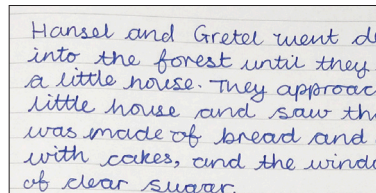 Hansel and Gretel went d
into the forest until they
a little house. They approac
little house and saw th
was made of bread and
with cakes, and the wind
of clear sugar.